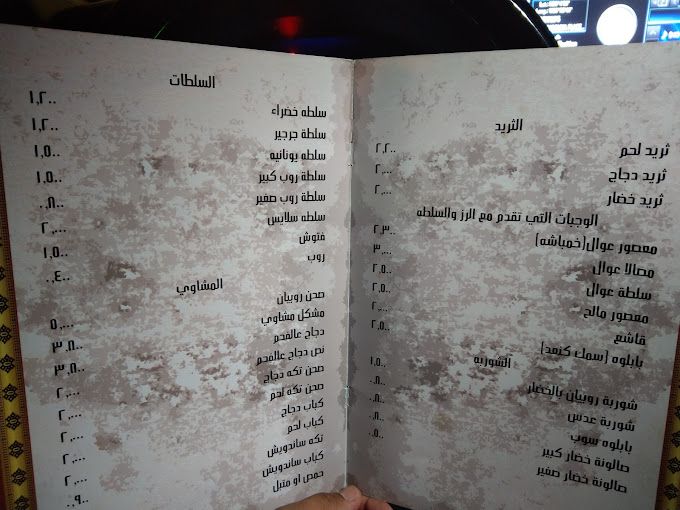 الثريد
ثريد لحم ٢,٢٠٠
ثريد دجاج ٢,٠٠٠
ثريد خضار ٢,٠٠٠
الوجبات التي تقدم مع الرز والسلطه
معصور عوال(خمباشه) ٢,٣٠٠
مصالا عوال ٣,٠٠٠
سلطة عوال ٢,٥٠٠
معصور مالح ٢,٥٠٠
قاشع ٢,٠٠٠
بابلوه (سمك كنعد) ٢,٥٠٠
الشوربه
شوربة روبيان بالخضار ١,٥٠٠
شوربة عدس ٠,٨٠٠
بابلوه سوب ٠,٨٠٠
صالونة خضار كبير ٠,٨٠٠
صالونة خضار صغير ٠,٥٠٠
السلطات
سلطه خضراء ١,٢٠٠
سلطة جرجير ١,٢٠٠
سلطه يونانيه ١,٥٠٠
سلطة روب كبيز ١,٥٠٠
سلطة روب صغير ٠,٨٠٠
سلطه سلايس ٢,٠٠٠
فتوش ١,٥٠٠
روب ٠,٤٠٠
المشاوي
صحن روبيان ٥,٠٠٠
مشكل مشاوي ٣,٨٠٠
دجاج عالفحم ٣,٨٠٠
نص دجاج عالفحم ٢,٠٠٠
صحن تكه دجاج ٢,٠٠٠
صحن تكه لحم ٢,٠٠٠
كباب دجاج ٢,٠٠٠
كباب لحم ٠,٩٠٠
تكه ساندويش
كباب ساندويش
حمص او متبل